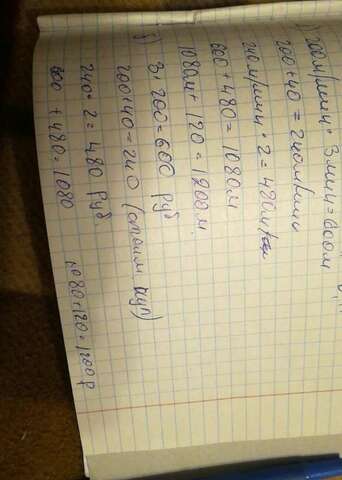 200м/мин · 3мин = 600м
200 + 40 = 240м/мин
240м/мин · 2 = 480м
600 + 480 = 1080м
1080м + 120 = 1200м.
3 · 200 = 600 руб
200 + 40 = 240 (стоим
240 · 2 = 480 руб.
600 + 480 = 1080 1080 + 120 = 1200 р